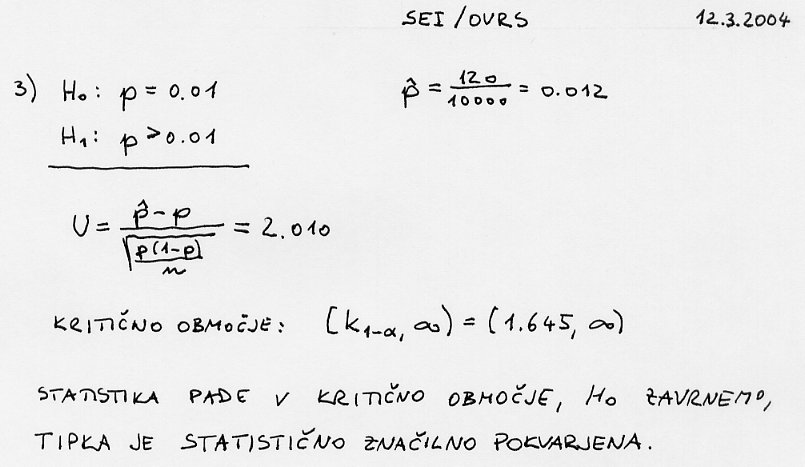 SEI / OVRS 12.3.2004
3) H₀: p = 0.01 p̂ = 120/10000 = 0.012
H₁: p > 0.01
U = (p̂ - p)/√(p(1-p)/n) = 2.010
KRITIČNO OBMOČJE: [k₁₋α, ∞) = (1.645, ∞)
STATISTIKA PADE V KRITIČNO OBMOČJE, H₀ ZAVRNEMO,
TIPKA JE STATISTIČNO ZNAČILNO POKVARJENA.